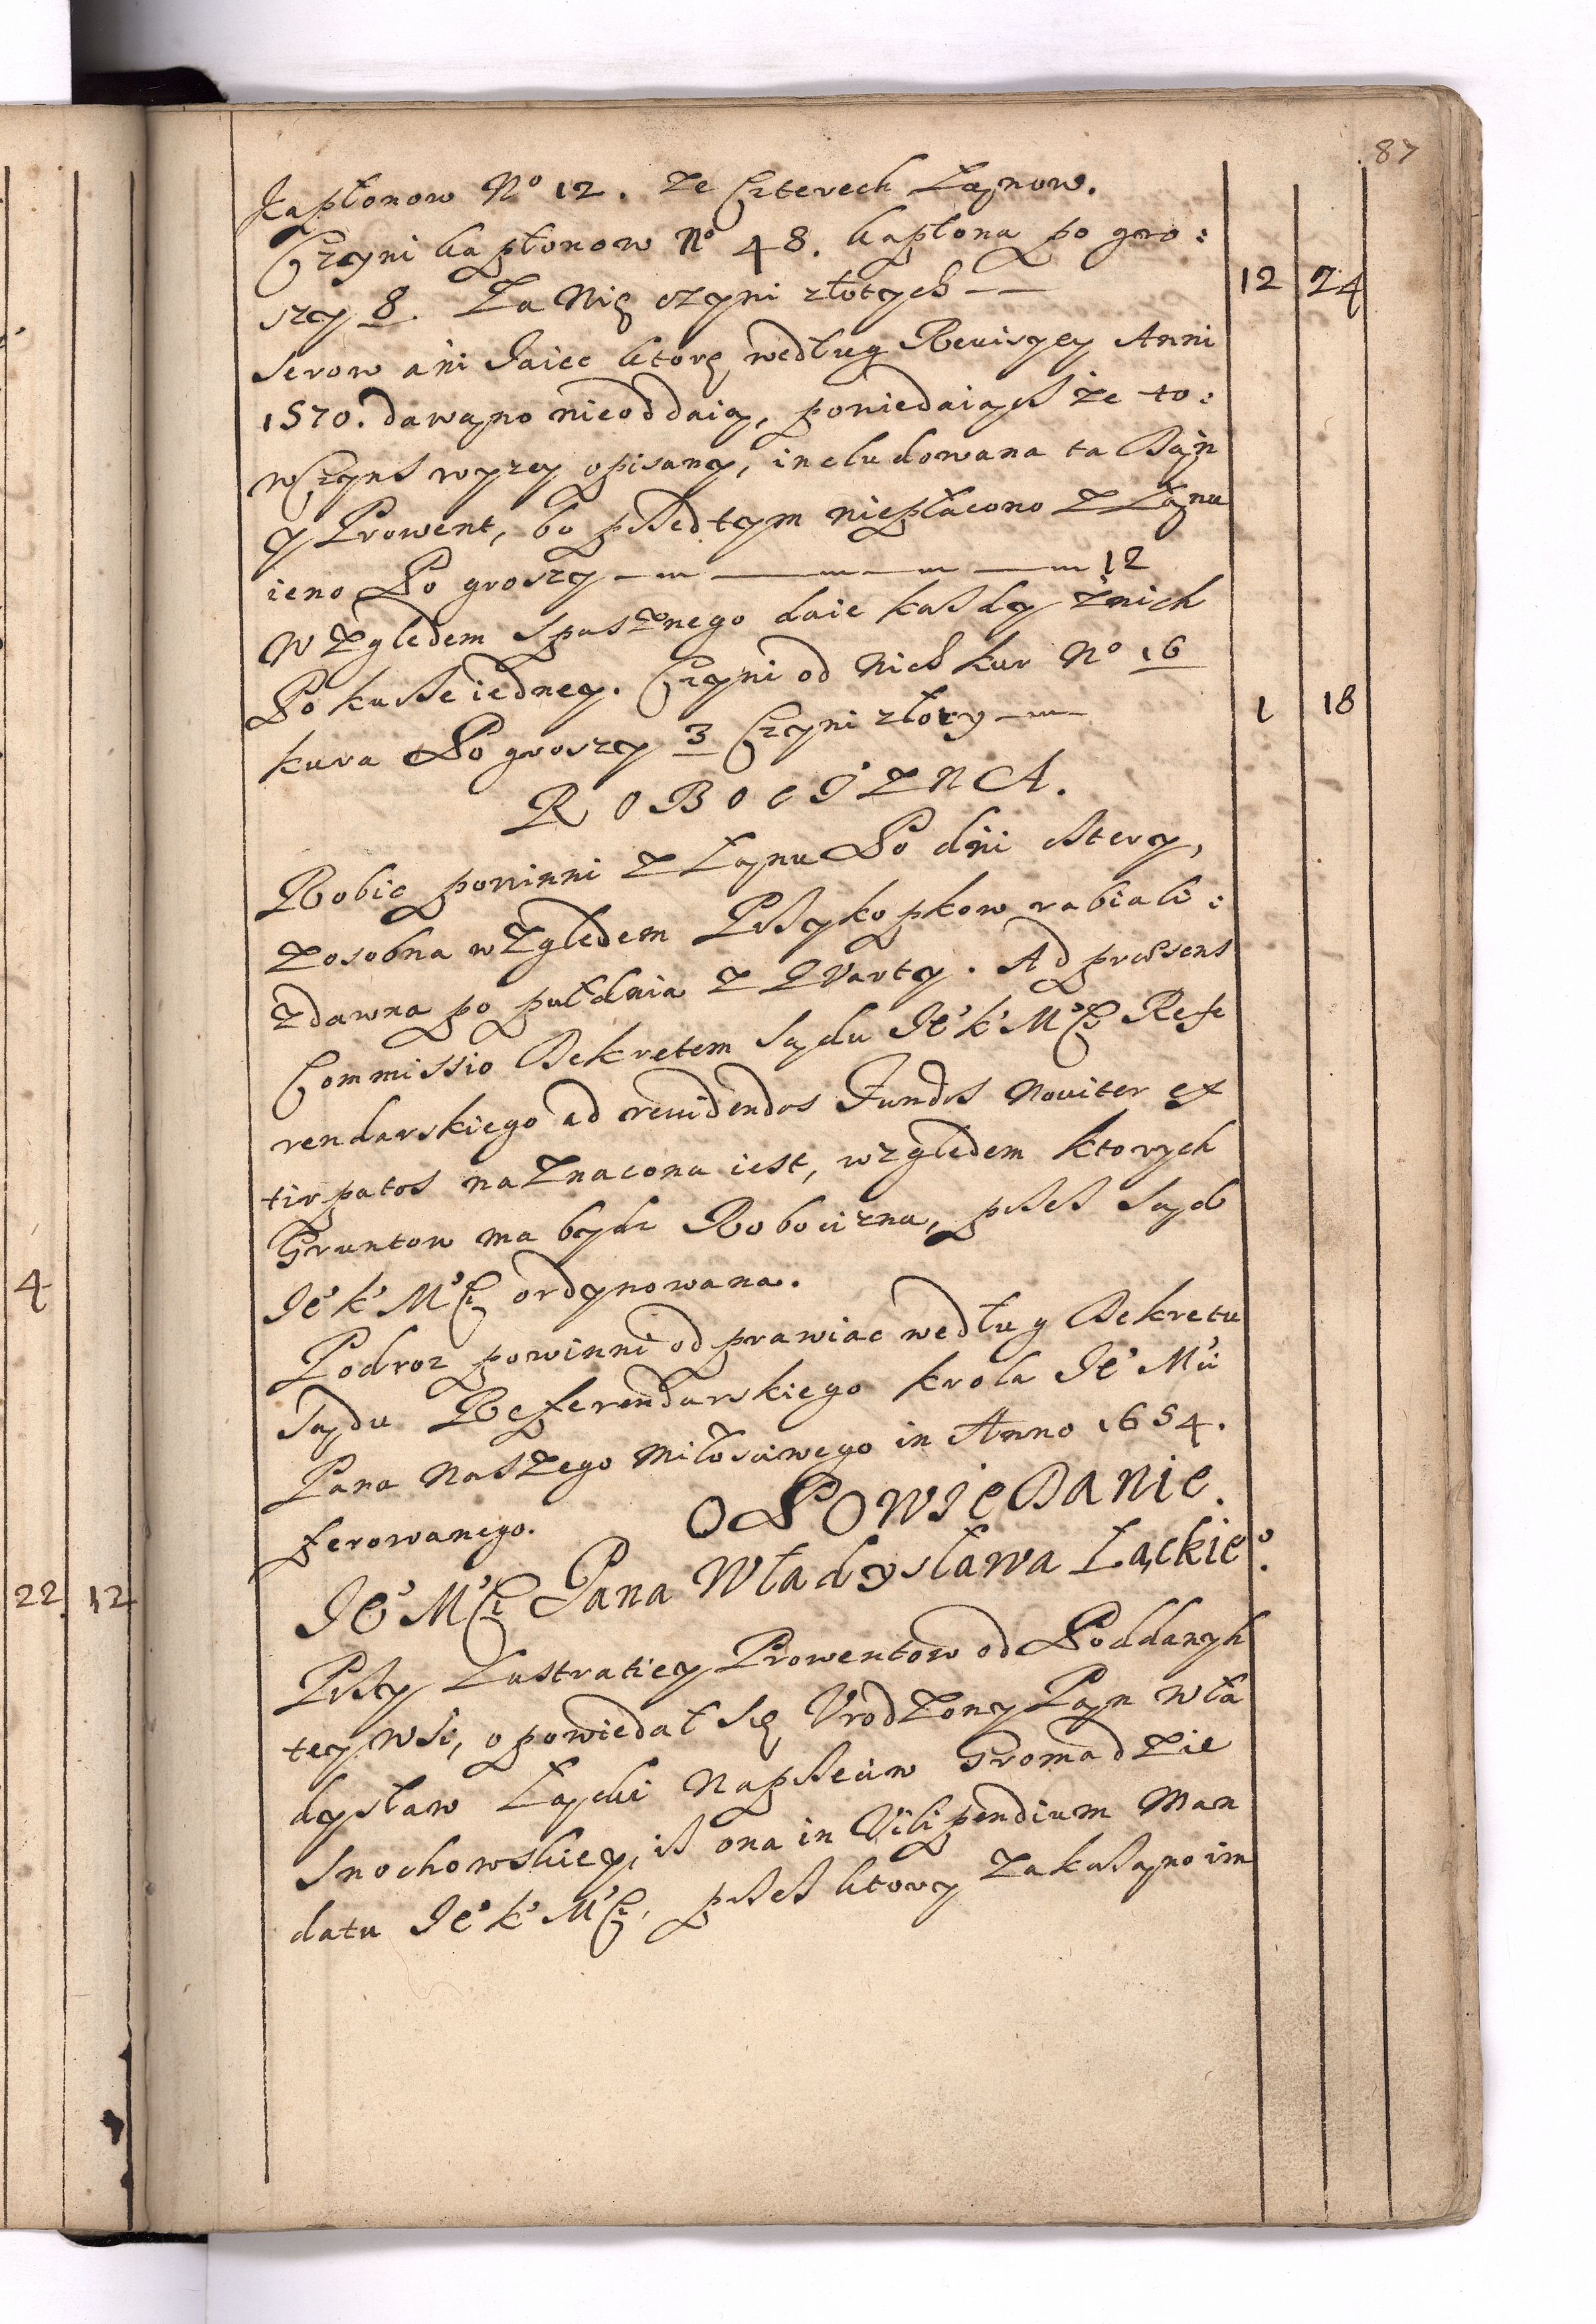 87
Kapłonow No 12. Ze Czterech Łanow.
Czyni kapłonow No 48. kapłona po gro:
szy 8. Za Nię czyni złotych 12 24
Serow ani Jaiec ktorę według Reuisyey Anni
1570. dawano nieoddaią, powiedaiąc że to:
w Czynsz wyzey opisany, includowana ta Dan
y Prowent, bo przedtym niepłacono z Łanu
ieno Po groszy 12
Względem Spusznego daie każdy z nich
Po kurze iedney. Czyni od Nich kur No 16
kura Po groszy 3 Czyni złoty 1 18
ROBOCIZNA.
Robic powinni z Łanu Po dni cztery,
zosobna względem Przykopkow rabiali:
zdawna po puł dnia z Qvarty. Ad præsens
Commissio Dekretem Sądu Je° K° M°Ci Refe
rendarskiego ad reuidendos Fundos Nouiter ex
tirpatos naznaczona iest, względem ktorych
Gruntow ma bydz Robocizna, przez Sąd
Je° K° M°Ci ordynowana.
Podroz powinni odprawiac według Dekretu
Sądu Referendarskiego krola Je° Mci
Pana Naszego Miłosciwego in Anno 1654.
ferowanego.
OPOWIEDANIE
Je° M°Ci Pana Władysława Łąckie°.
Przy Lustratiey Prowentow od Poddanych
tey Wsi, opowiedał Się Vrodzony Pan Wła
dysław Łącki Naprzeciw Gromadzie
Snochowskiey, iż ona in Vilipendium Man
datu Je° K° M°Ci, przez ktory zakazano im
4
22 12